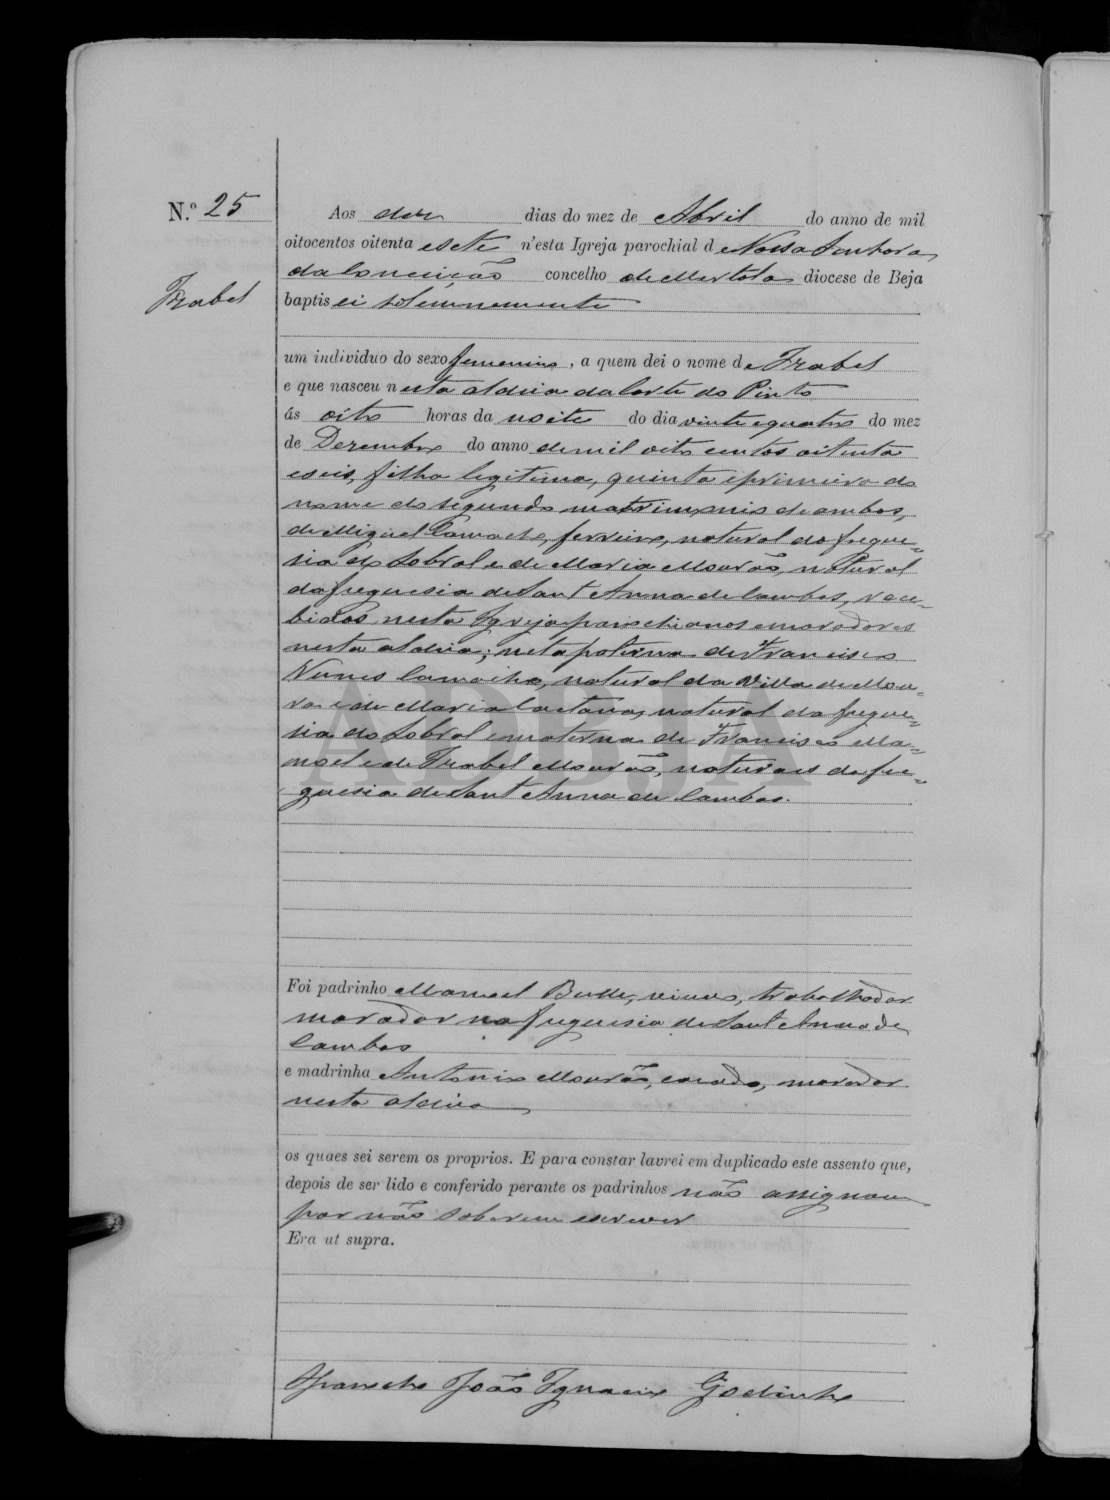 N.º 25
Izabel
Aos dez dias do mez de Abril do anno de mil
oitocentos oitenta e sete n'esta Igreja parochial de Nossa Senhora
da Conceição concelho de Mertola diocese de Beja
baptisei solemnemente
um individuo do sexo femenino, a quem dei o nome de Izabel
e que nasceu nesta aldeia da Corte do Pinto
ás oito horas da noite do dia vinte e quatro do mez
de Dezembro do anno de mil oito centos oitenta
e seis, filha legitima, quinta e primeira do
nome do segundo matrimonio de ambos,
de Miguel Camacho, ferreiro, natural da fregue=
sia do Sobral e de Maria Mourão, natural
da freguesia de Sant Anna de Cambas, rece=
bidos nesta Igreja parochianos e moradores
nesta aldeia; neta paterna de Francisco
Nunes Camacho, natural da Villa de Mou=
ra e de Maria Caetana, natural da fregue=
sia do Sobral e materna de Francisco Ma=
noel e de Izabel Mourão, naturaes da fre=
guesia de Sant Anna de Cambas.
ADBJA
Foi padrinho Manoel viuvo, trabalhador
morador na freguesia de Sant Anna de
Cambas
e madrinha Antonio Mourão, casado, morador
nesta aldeia
os quaes sei serem os proprios. E para constar lavrei em duplicado este assento que,
depois de ser lido e conferido perante os padrinhos não assignam
por não saberem escrever
Era ut supra.
O Parocho João Ignacio Godinho